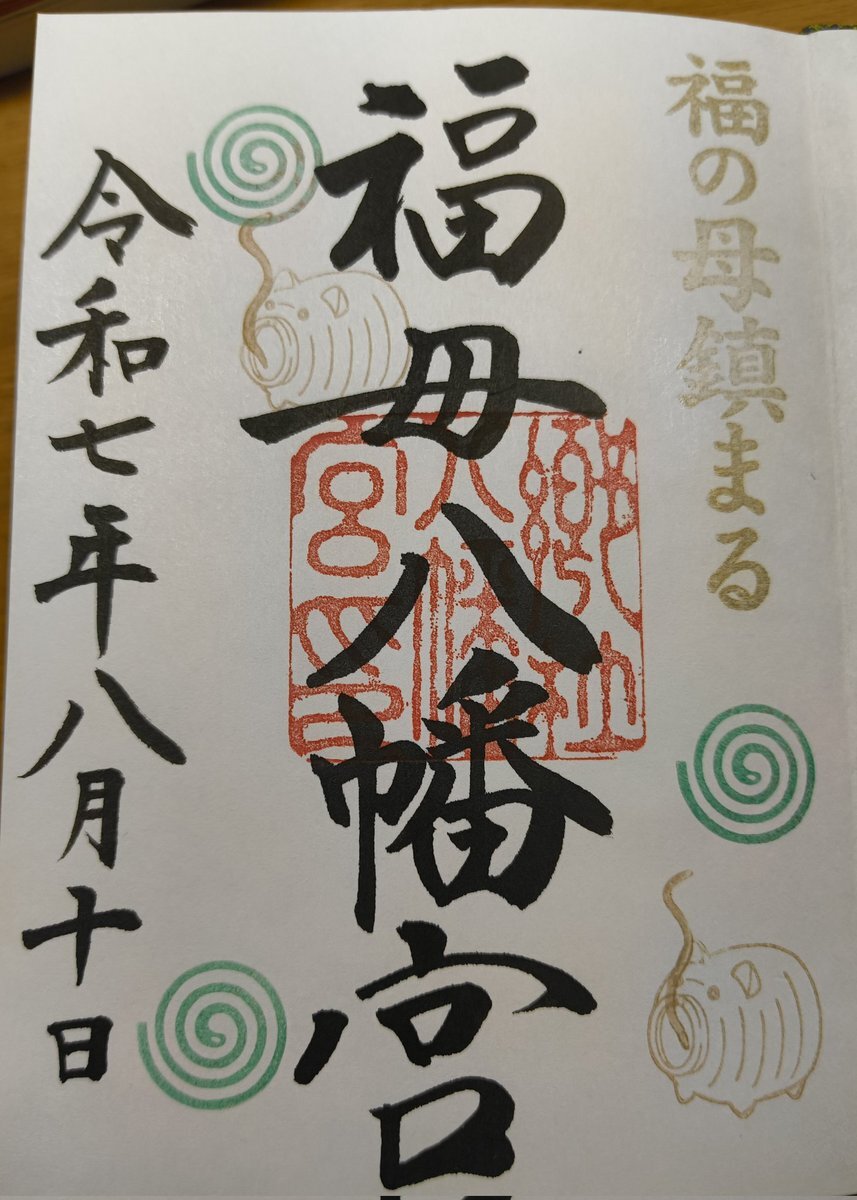 福の母鎮まる
福母八幡宮
令和七年八月十日